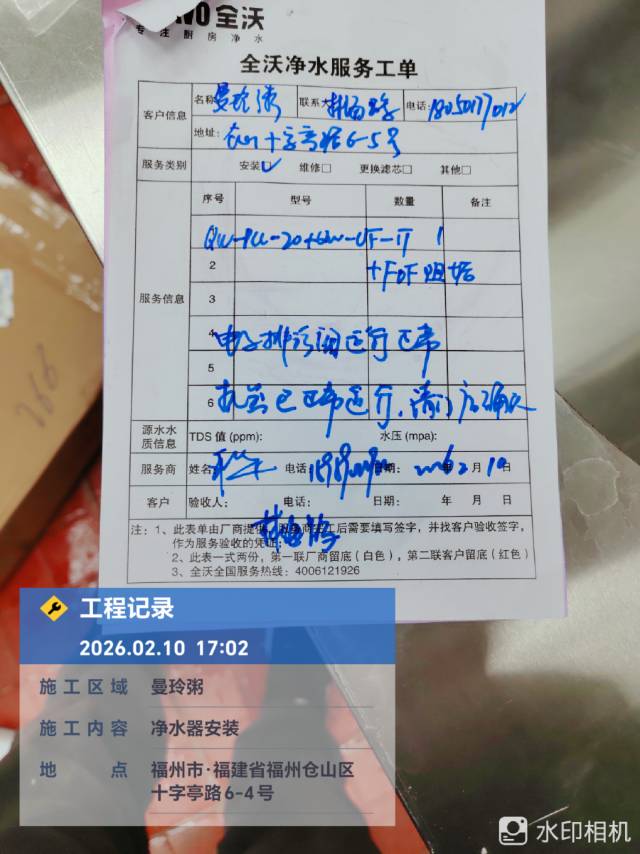 全沃
专注厨房净水
全沃净水服务工单
客户信息
名称 曼玲粥 联系人 电话:
地址: 十字亭路6-5号
服务类别 安装☑ 维修□ 更换滤芯□ 其他□
服务信息
序号 型号 数量 备注
1
2 +FOF阻垢
3
4 电子排污阀运行正常
5
6 安装已正常运行,请门店确认
源水水质信息 TDS 值 (ppm): 水压 (mpa):
服务商 姓名: 电话: 日期: 2026年2月10日
客户 验收人: 电话: 日期: 年 月 日
注:1、此表单由厂商提供,服务商完工后需要填写签字,并找客户验收签字,
作为服务验收的凭证
2、此表一式两份,第一联厂商留底(白色),第二联客户留底(红色)
3、全沃全国服务热线:4006121926
工程记录
2026.02.10 17:02
施工区域 曼玲粥
施工内容 净水器安装
地点 福州市·福建省福州仓山区
十字亭路6-4号
水印相机